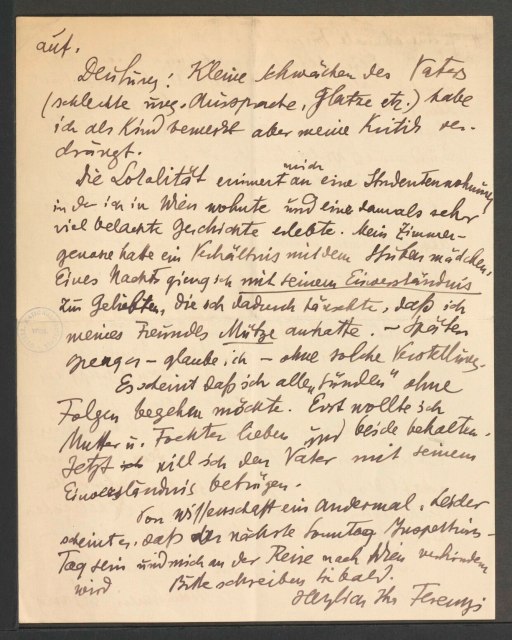 auf.
Deutung: Kleine Schwächen des Vaters
(schlechte ung. Aussprache, Glatze etz.) habe
ich als Kind bemerkt aber meine Kritik ver-
drängt.
Die Lokalität erinnert mich an eine Studentenwohnung,
in der ich in Wien wohnte und eine damals sehr
viel belachte Geschichte erlebte. Mein Zimmer-
genosse hatte ein Verhältnis mit dem Stubenmädchen.
Eines Nachts gieng ich mit seinem Einverständnis
zur Geliebten, die ich dadurch täuschte, daß ich
meines Freundes Mütze anhatte. – Später
gieng es – glaube ich – ohne solche Verstellung.
Es scheint daß ich alle „Sünden" ohne
Folgen begehen möchte. Erst wollte ich
Mutter u. Tochter lieben und beide behalten.
Jetzt ich will ich den Vater mit seinem
Einverständnis betrügen.
Von Wissenschaft ein andermal. Leider
scheint es, daß der nächste Sonntag Inspektions-
Tag sein und mich an der Reise nach Wien verhindern
wird Bitte schreiben Sie bald.
Herzlich Ihr Ferenczi